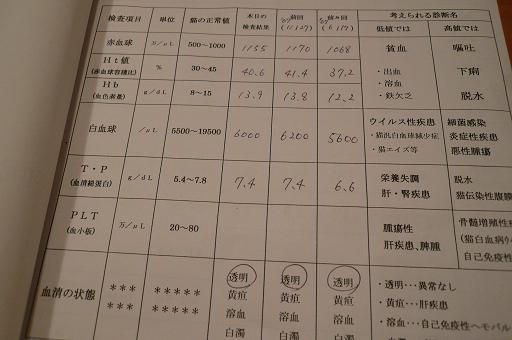 検査項目 単位 猫の正常値 本日の検査結果 前回 (11/27) 前々回 (6/17) 考えられる診断名
低値では 高値では
赤血球 万/μL 500~1000 1155 1170 1068 貧血 嘔吐
Ht値 (赤血球容積比) % 30~45 40.6 41.4 37.2 ・出血 下痢
・溶血
Hb (血色素量) g/dL 8~15 13.9 13.8 12.2 ・鉄欠乏 脱水
白血球 /μL 5500~19500 6000 6200 5600 ウイルス性疾患 細菌感染
・猫汎白血球減少症 炎症性疾患
・猫エイズ等 悪性腫瘍
T・P (血清総蛋白) g/dL 5.4~7.8 7.4 7.4 6.6 栄養失調 脱水
肝・腎疾患 猫伝染性腹膜
PLT (血小板) 万/μL 20~80 腫瘍性 骨髄増殖性
肝疾患、脾腫 (猫白血病ウイ
自己免疫性
血清の状態 *** ***** 透明 透明 透明 ・透明…異常なし
*** ***** 黄疸 黄疸 黄疸 ・黄疸…肝疾患
溶血 溶血 溶血 ・溶血…自己免疫性
白濁 白濁 白濁